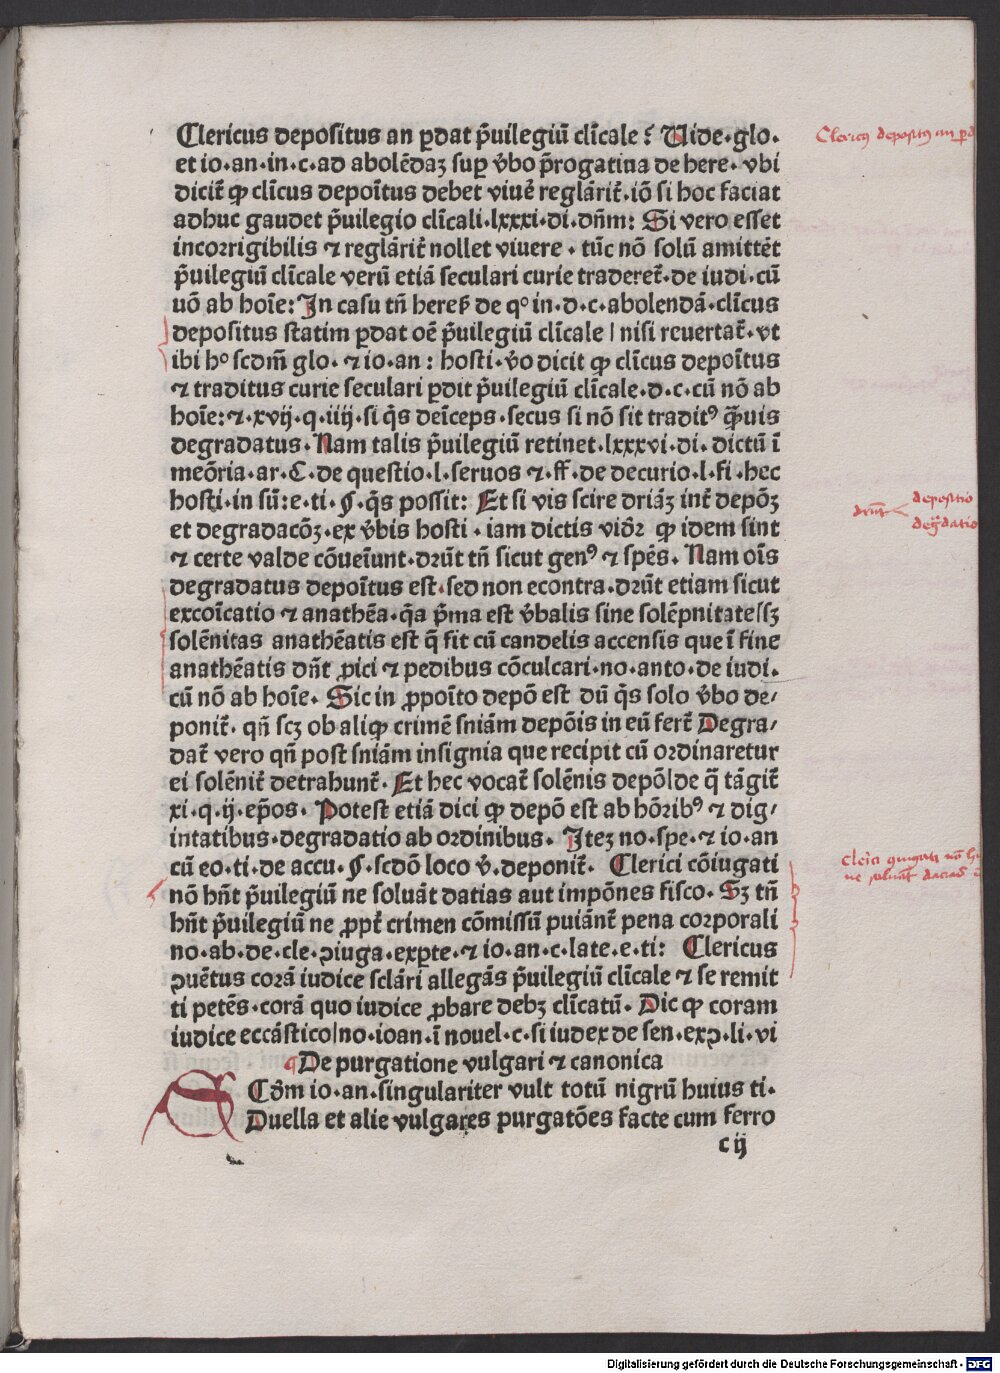 Clericus depositus an ꝑdat p̄uilegiū clīcale? Uide·glo·
et io·an·in·c·ad abolēdaꝫ suꝑ v̄bo p̄rogatiua de here·vbi
dicit̄ ꝙ clīcus depoītus debet viuē reglārit̄·iō si hoc faciat
adhuc gaudet p̄uilegio clīcali·lxxxi·di·dn̄m: Si vero esset
incorrigibilis ⁊ reglārit̄ nollet viuere·tūc nō solū amittēt
p̄uilegiū clīcale verū etiā seculari curie traderet̄·de iudi·cū
uō ab hoīe: In casu tn̄ heres̄ de qº in·d·c·abolendā·clīcus
depositus statim ꝑdat oē p̄uilegiū clīcale | nisi reuertat̄·vt
ibi hº scdm̄ glo·⁊ io·an: hosti·v̄o dicit ꝙ clīcus depoītus
⁊ traditus curie seculari ꝑdit p̄uilegiū clīcale·d·c·cū nō ab
hoīe:⁊·xvij·q·iiij·si q̄s deīceps·secus si nō sit traditꝰ q̄̄uis
degradatus·Nam talis p̄uilegiū retinet·lxxxvi·di·dictū ī
meōria·ar·C·de questio·l·seruos ⁊·ff·de decurio·l·fi·hec
hosti·in sū:e·ti·§·q̄s possit: Et si vis scire driāꝫ int̄ depōꝫ
et degradacōꝫ·ex v̄bis hosti·iam dictis vidr̄ ꝙ idem sint
⁊ certe valde cōueīunt·drūt tn̄ sicut genꝰ ⁊ spēs·Nam oīs
degradatus depoītus est·sed non econtra·drūt etiam sicut
excoīcatio ⁊ anathēa·q̄a p̄ma est v̄balis sine solēpnitatessꝫ
solēnitas anathēatis est q̄ fit cū candelis accensis que ī fine
anathēatis dn̄t ꝓici ⁊ pedibus cōculcari·no·anto·de iudi·
cū nō ab hoīe·Sic in ꝓpoīto depō est dū q̄s solo v̄bo de/
ponit̄·qn̄ scꝫ ob aliꝙ crimē sniām depōis in eū fert̄ Degra/
dat̄ vero qn̄ post sniām insignia que recipit cū ordinaretur
ei solēnit̄ detrahunt̄·Et hec vocat̄ solēnis depō|de q̄ tāgit̄
xi·q·ij·ep̄os·Potest etiā dici ꝙ depō est ab hōribꝰ ⁊ dig/
intatibus·degradatio ab ordinibus·Iteꝫ no·spe·⁊ io·an
cū eo·ti·de accu·§·scdō loco v̄·deponit̄· Clerici cōiugati
nō hn̄t p̄uilegiū ne soluāt datias aut impōnes fisco·Sꝫ tn̄
hn̄t p̄uilegiū ne ꝓpt̄ crimen cōmissū puiānt̄ pena corporali
no·ab·de·cle·ꝯiuga·exꝑte·⁊ io·an·c·late·e·ti: Clericus
ꝯuētus corā iudice sclāri allegās p̄uilegiū clīcale ⁊ se remit
ti petēs·corā quo iudice ꝓbare debꝫ clīcatū·Dic ꝙ coram
iudice eccāstico|no·ioan·ī nouel·c·si iudex de sen·exꝯ·li·vi
¶De purgatione vulgari ⁊ canonica
SCōm io·an·singulariter vult totū nigrū huius ti·
Duella et alie vulgares purgatōes facte cum ferro
c ij
Clericꝰ depositꝰ an ꝑd
drūt
depositio
degrādatio
Digitalisierung gefördert durch die Deutsche Forschungsgemeinschaft - DFG